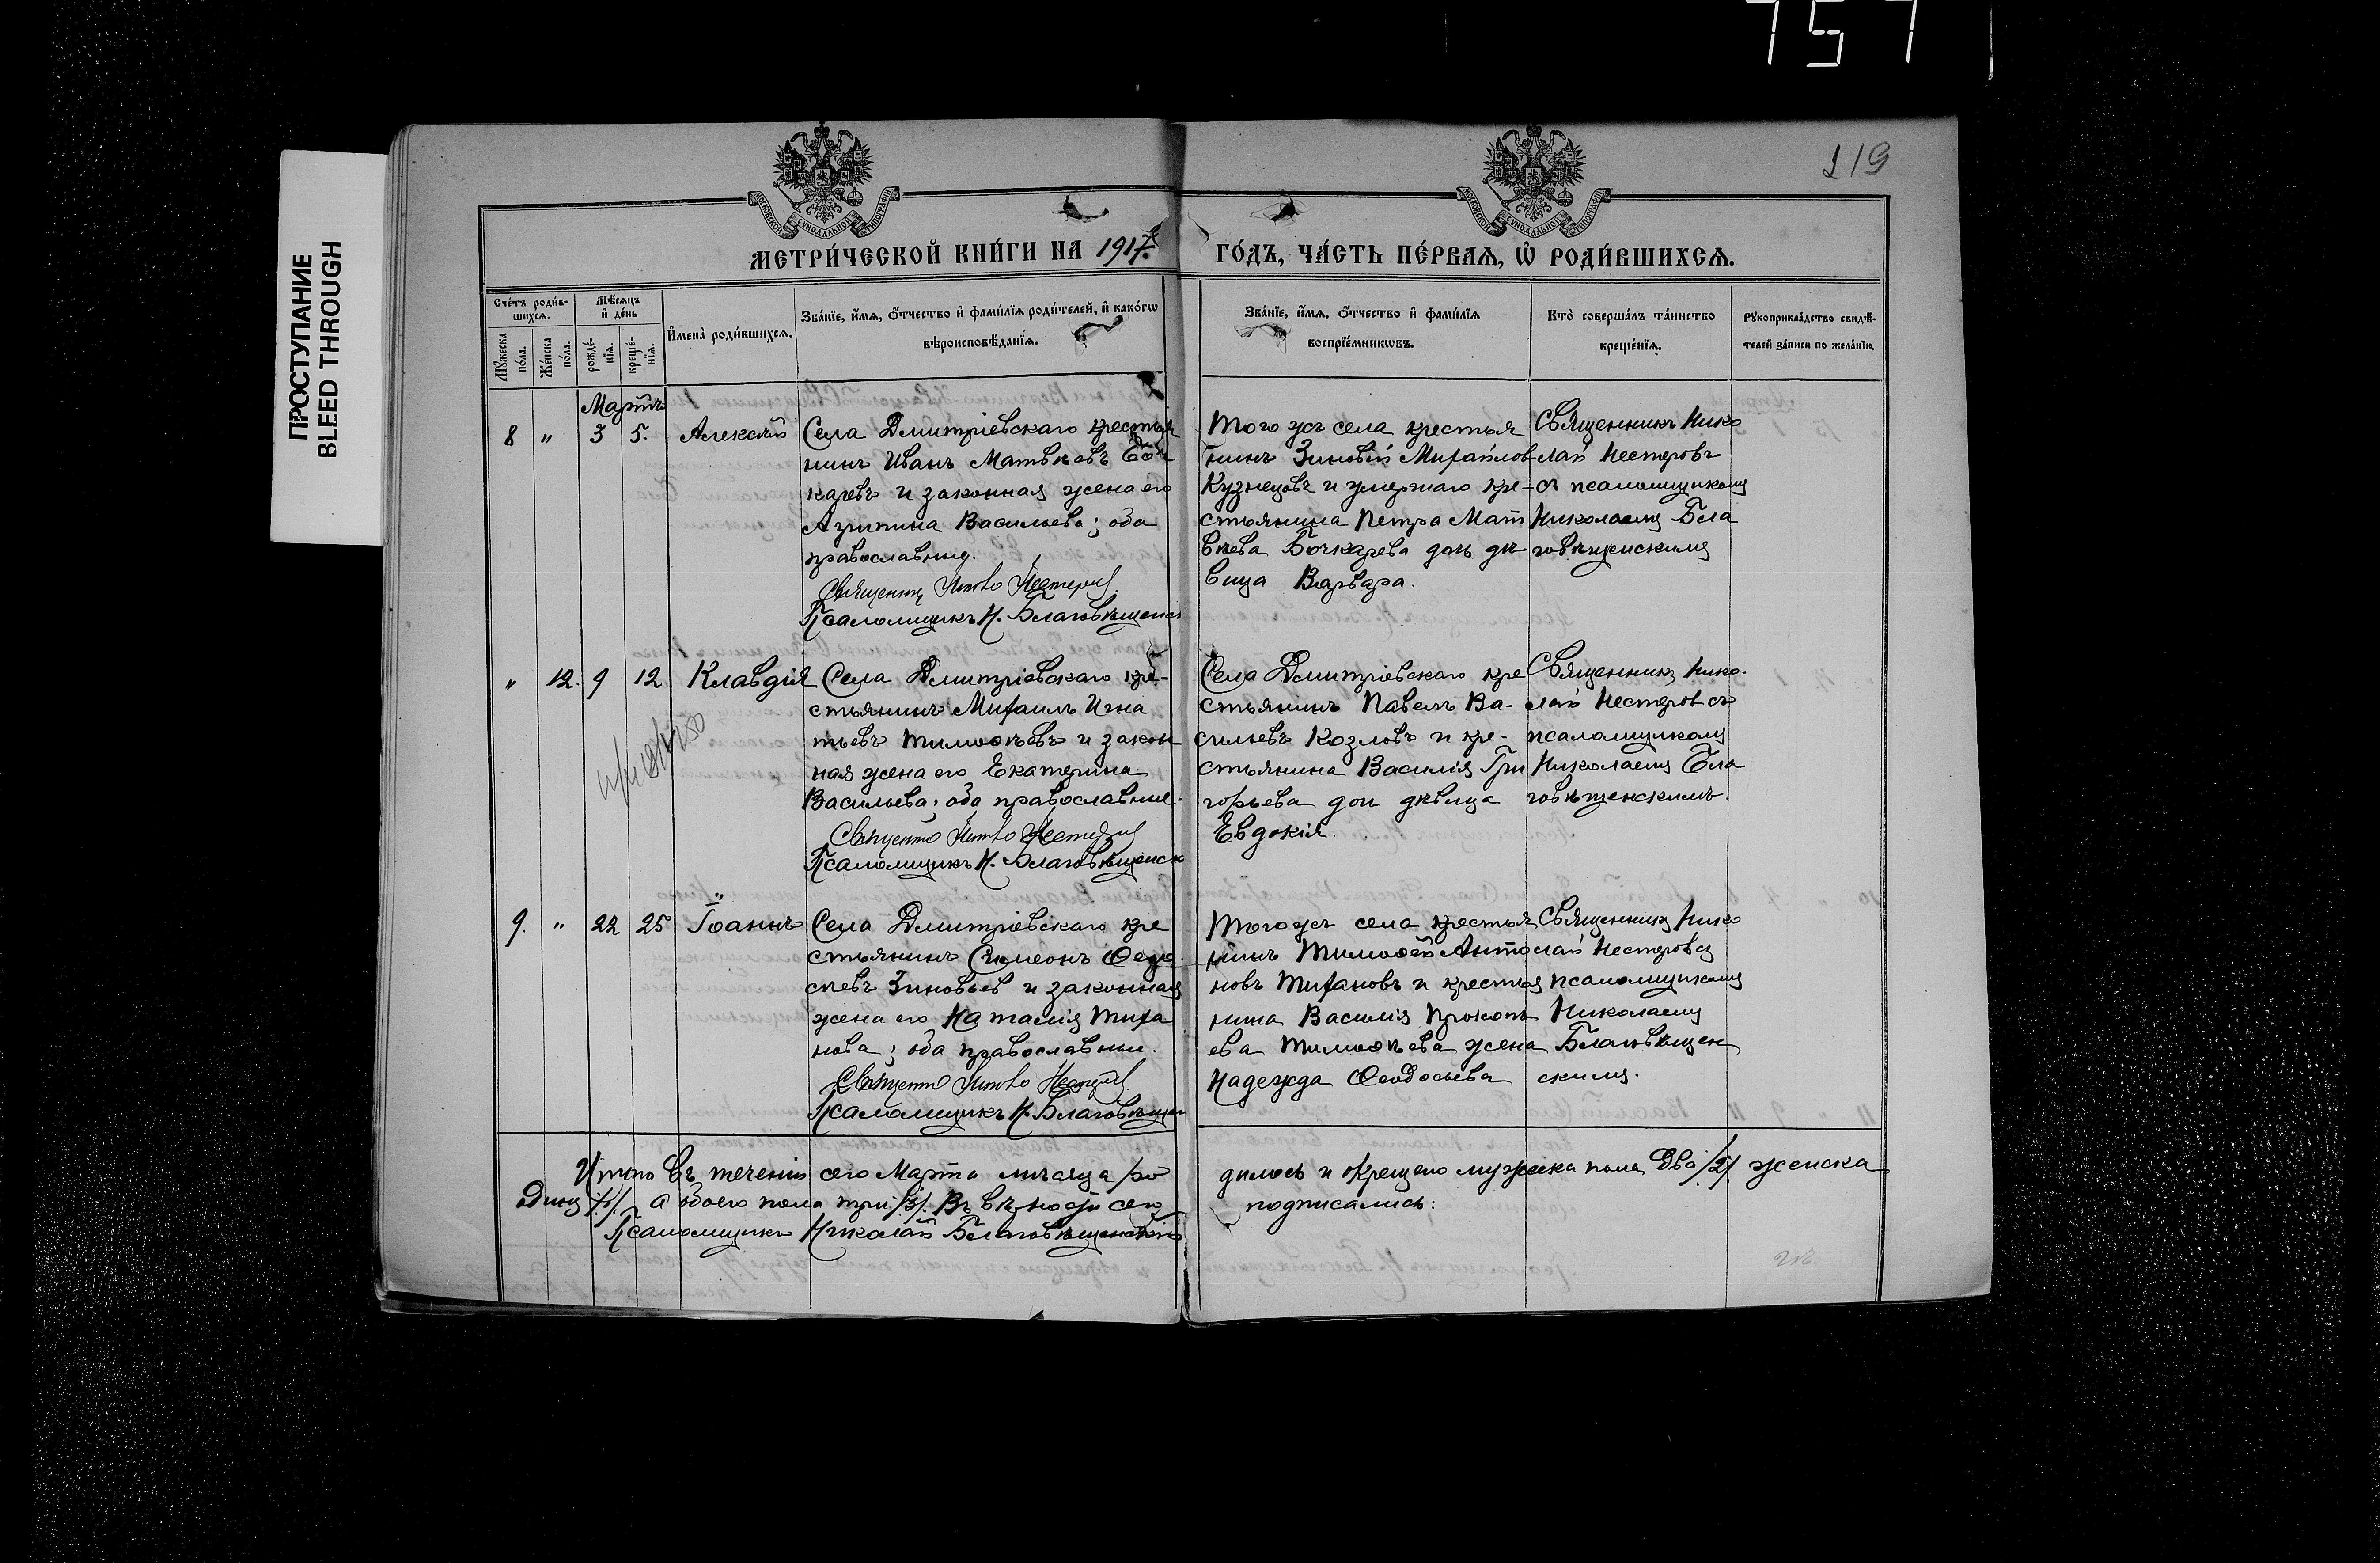 757
ПРОСТУПАНИЕ
BLEED THROUGH
119
МОСКОВСКОЙ СѴНОДАЛЬНОЙ ТИПОГРАФІИ
МОСКОВСКОЙ СѴНОДАЛЬНОЙ ТИПОГРАФІИ
МЕТРИ́ЧЕСКОЙ КНИ́ГИ НА 1917 ГО́ДЪ, ЧА́СТЬ ПЕ́РВАЯ, Ѡ҆ РОДИ́ВШИХСЯ.
Сче́тъ роди́в-
шихся.
Мꙋ́жеска
по́ла.
Же́нска
по́ла.
Мѣ́сяцъ
и҆ де́нь
рожде́-
нїя.
креще́-
нїя.
И҆мена̀ роди́вшихся.
Зва́нїе, и҆́мя, ѻ҆́тчество и҆ фами́лїя роди́телей, и҆ како́гѡ
вѣроисповѣ́данїя.
Зва́нїе, и҆́мя, ѻ҆́тчество и҆ фами́лїя
воспрїе́мникѡвъ.
Кто̀ соверша́лъ та́инство
креще́нїя.
Рꙋкоприкла́дство свидѣ́-
телей за́писи по жела́нїю.
Мартъ
8 " 3 5. Алексѣй
Села Дмитріевскаго крестья
нинъ Иванъ Матвѣевъ Боч
каревъ и законная жена его
Агрипина Васильева; оба
православные.
Священникъ Нестеровъ
Псаломщикъ Н. Благовѣщенск
Того же села крестья
нинъ Зиновій Михайлов
Кузнецовъ и умершаго кре-
стьянина Петра Мат
вѣева Бочкарева дочь дѣ
вица Варвара.
Священникъ Нико
лай Нестеровъ
съ псаломщикомъ
Николаемъ Бла
говѣщенскимъ
" 12. 9 12 Клавдія
Села Дмитріевскаго кре-
стьянинъ Михаилъ Игна
тьевъ Тимоѳѣевъ и закон
ная жена его Екатерина
Васильева; оба православные.
Священникъ Нестеровъ
Псаломщикъ Н. Благовѣщенск
Села Дмитріевскаго кре
стьянинъ Павелъ Ва-
сильевъ Козловъ и кре-
стьянина Василія Гри
горьева доч дѣвица
Евдокія.
Священникъ Нико-
лай Нестеровъ съ
псаломщикомъ
Николаемъ Бла
говѣщенскимъ.
9. " 22 25 Іоаннъ
Села Дмитріевскаго кре
стьянинъ Симеонъ Ѳедо
сѣевъ Зиновьев и законная
жена его Наталія Тиха
нова; оба православные.
Священникъ Нестеровъ
Псаломщикъ Н. Благовѣщен
Того же села крестья
нинъ Тимоѳей Анто
новъ Тихановъ и крестья
нина Василія Прокопь
ева Тимоѳѣева жена
Надежда Ѳеодосьева
Священникъ Нико
лай Нестеровъ съ
псаломщикомъ
Николаемъ
Благовѣщен
скимъ.
Итого въ теченіи сего Марта мѣсяца ро
дилось и крещено мужеска пола два /2/. женска
одинъ /1/. а обоего пола три /3/. Въ вѣрности сего
подписались:
Псаломщикъ Николай Благовѣщенскій